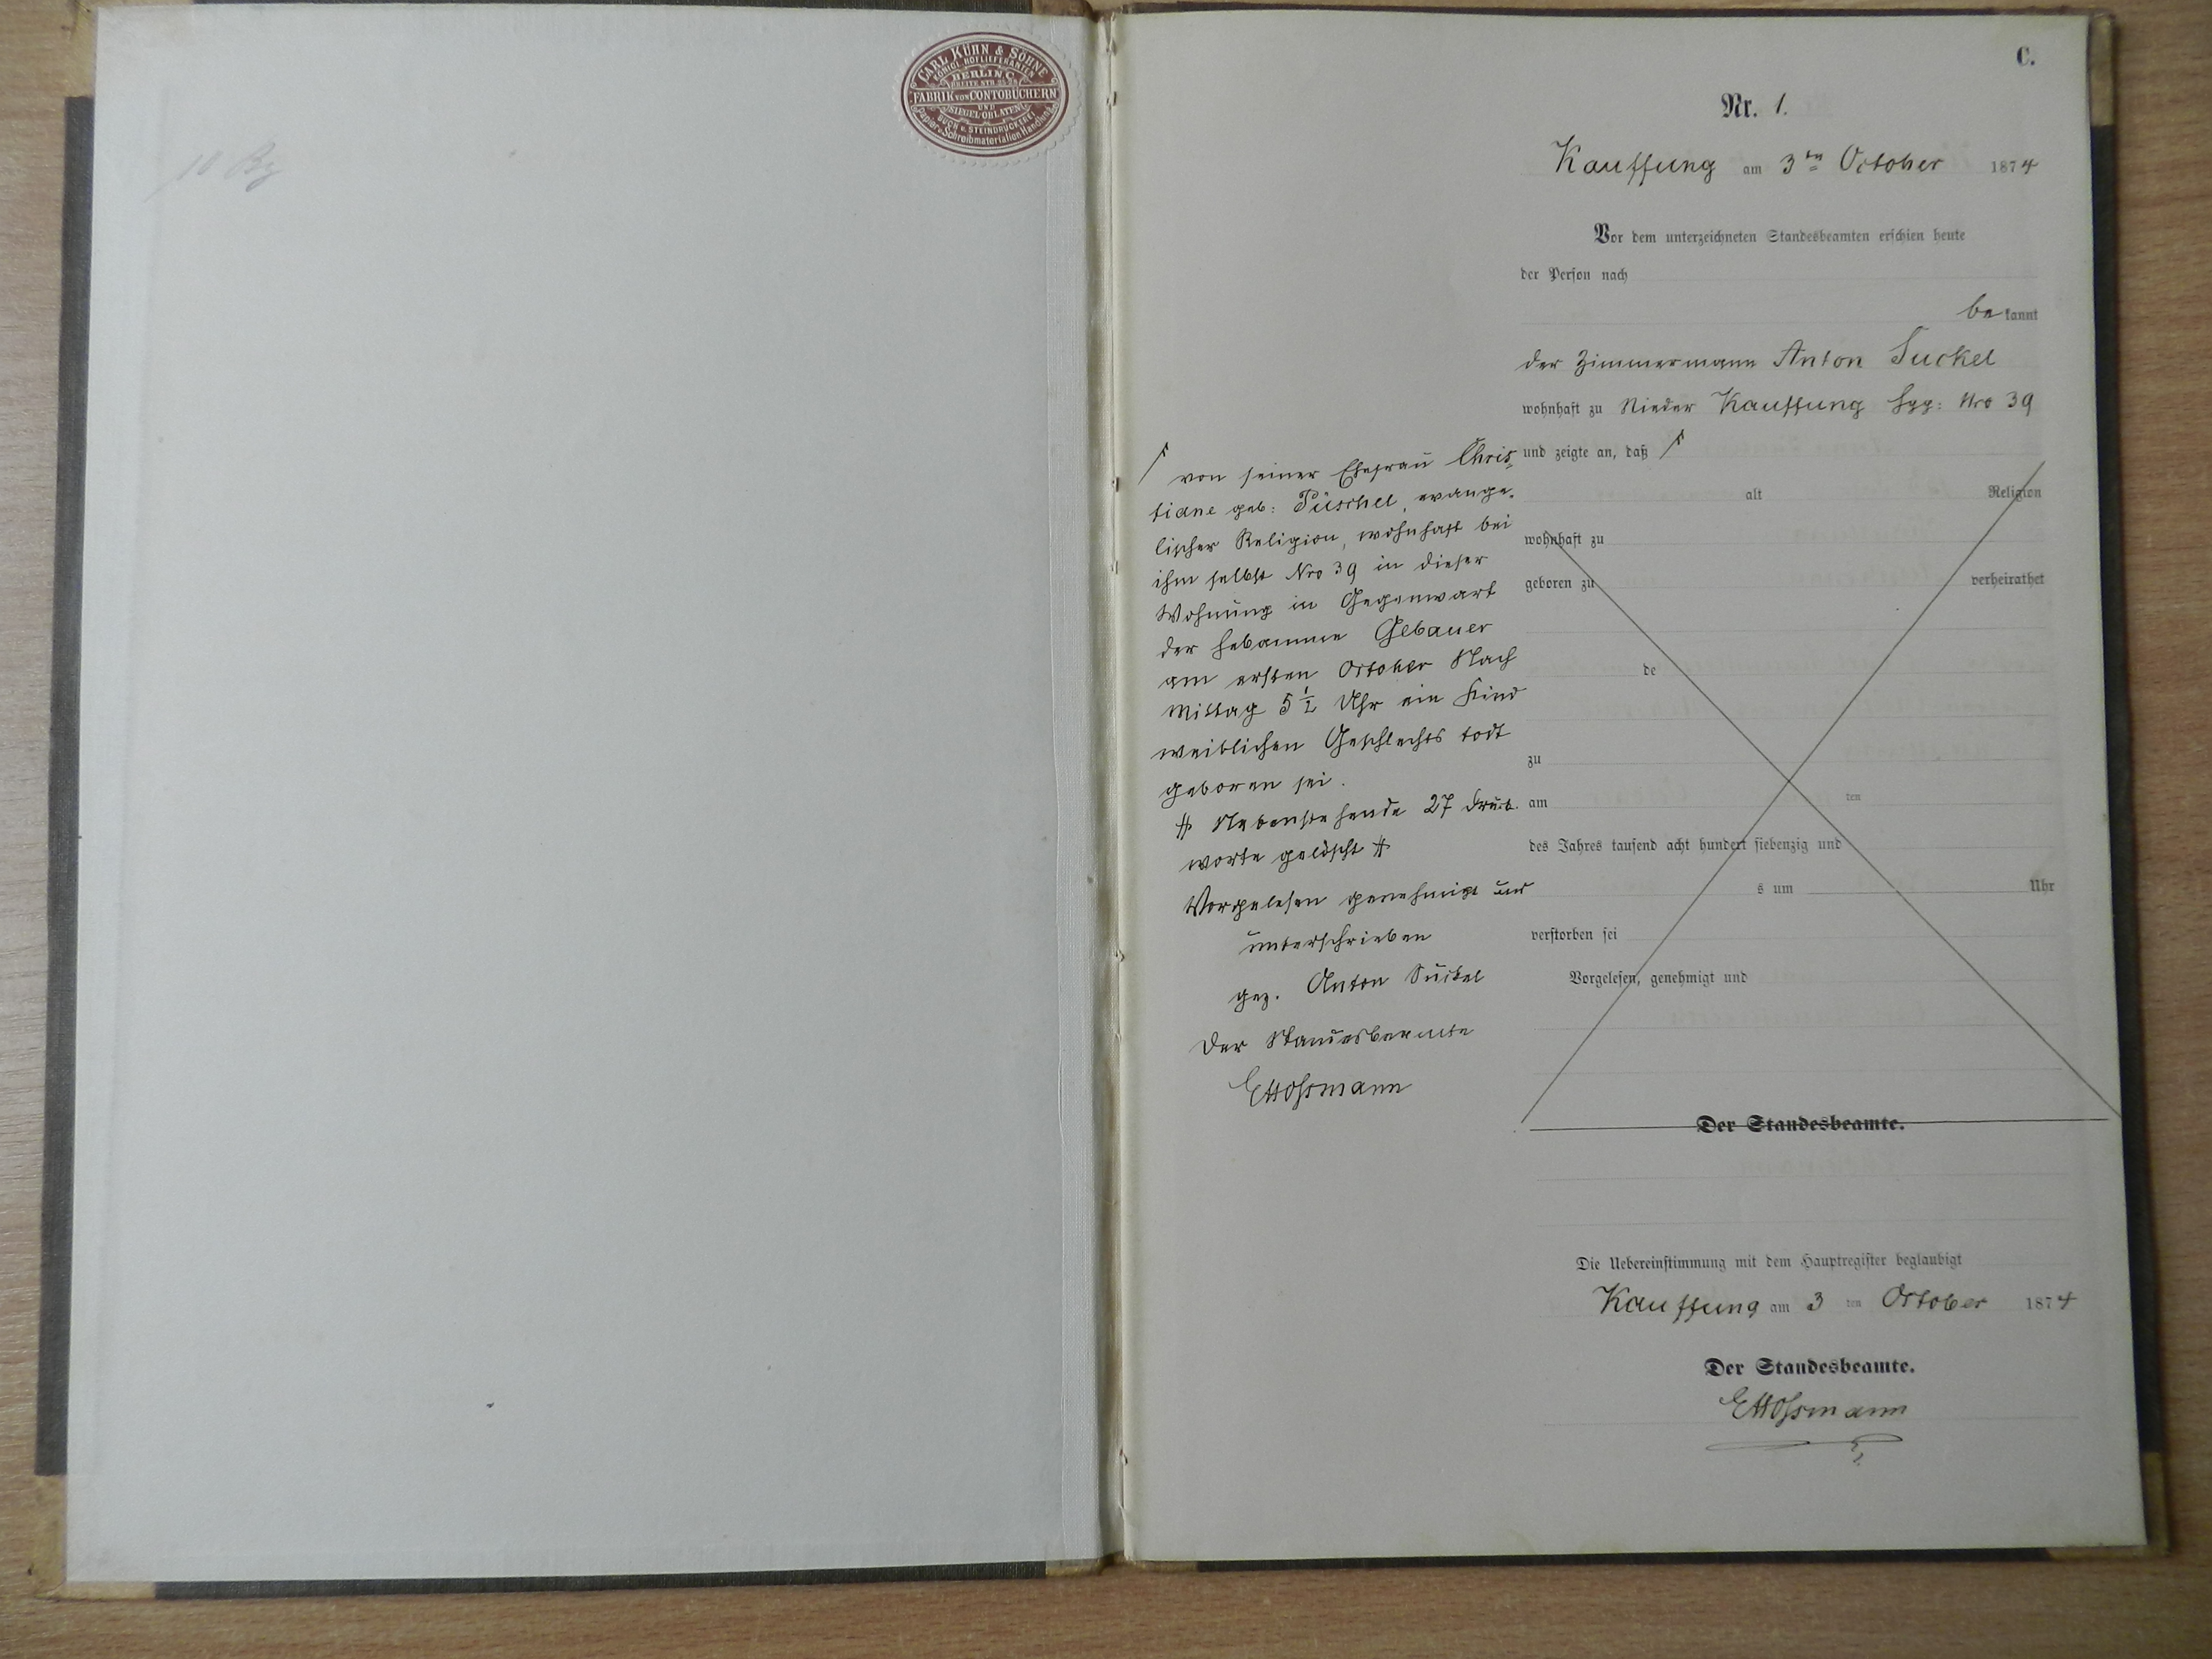 CARL KÜHN & SÖHNE
KÖNIGL. HOFLIEFERANTEN
BERLIN C.
BREITE STR.
FABRIK VON CONTOBÜCHERN
UND
SIEGEL-OBLATEN
BUCH U. STEINDRUCKEREI
Papier u. Schreibmaterialien Handlung
10 Bg
C.
Nr. 1.
Kauffung am 3ten October 1874
Vor dem unterzeichneten Standesbeamten erschien heute
der Person nach
bekannt
der Zimmermann Anton Suckel
wohnhaft zu Nieder Kauffung Nro 39
und zeigte an, daß
alt Religion
wohnhaft zu
geboren zu verheirathet
de
zu
am ten
des Jahres tausend acht hundert siebenzig und
s um Uhr
verstorben sei
Vorgelesen, genehmigt und
Der Standesbeamte.
von seiner Ehefrau Chris-
tiane geb: Püschel, evange-
lischer Religion, wohnhaft bei
ihm selbst Nro 39 in dieser
Wohnung in Gegenwart
der Hebamme Gebauer
am ersten October Nach
mittag 5 1/2 Uhr ein Kind
weiblichen Geschlechts todt
geboren sei.
Nebenstehende 27 Druck-
worte gelöscht
Vorgelesen genehmigt und
unterschrieben
gez. Anton Suckel
Der Standesbeamte
Die Uebereinstimmung mit dem Hauptregister beglaubigt
Kauffung am 3 ten October 1874
Der Standesbeamte.